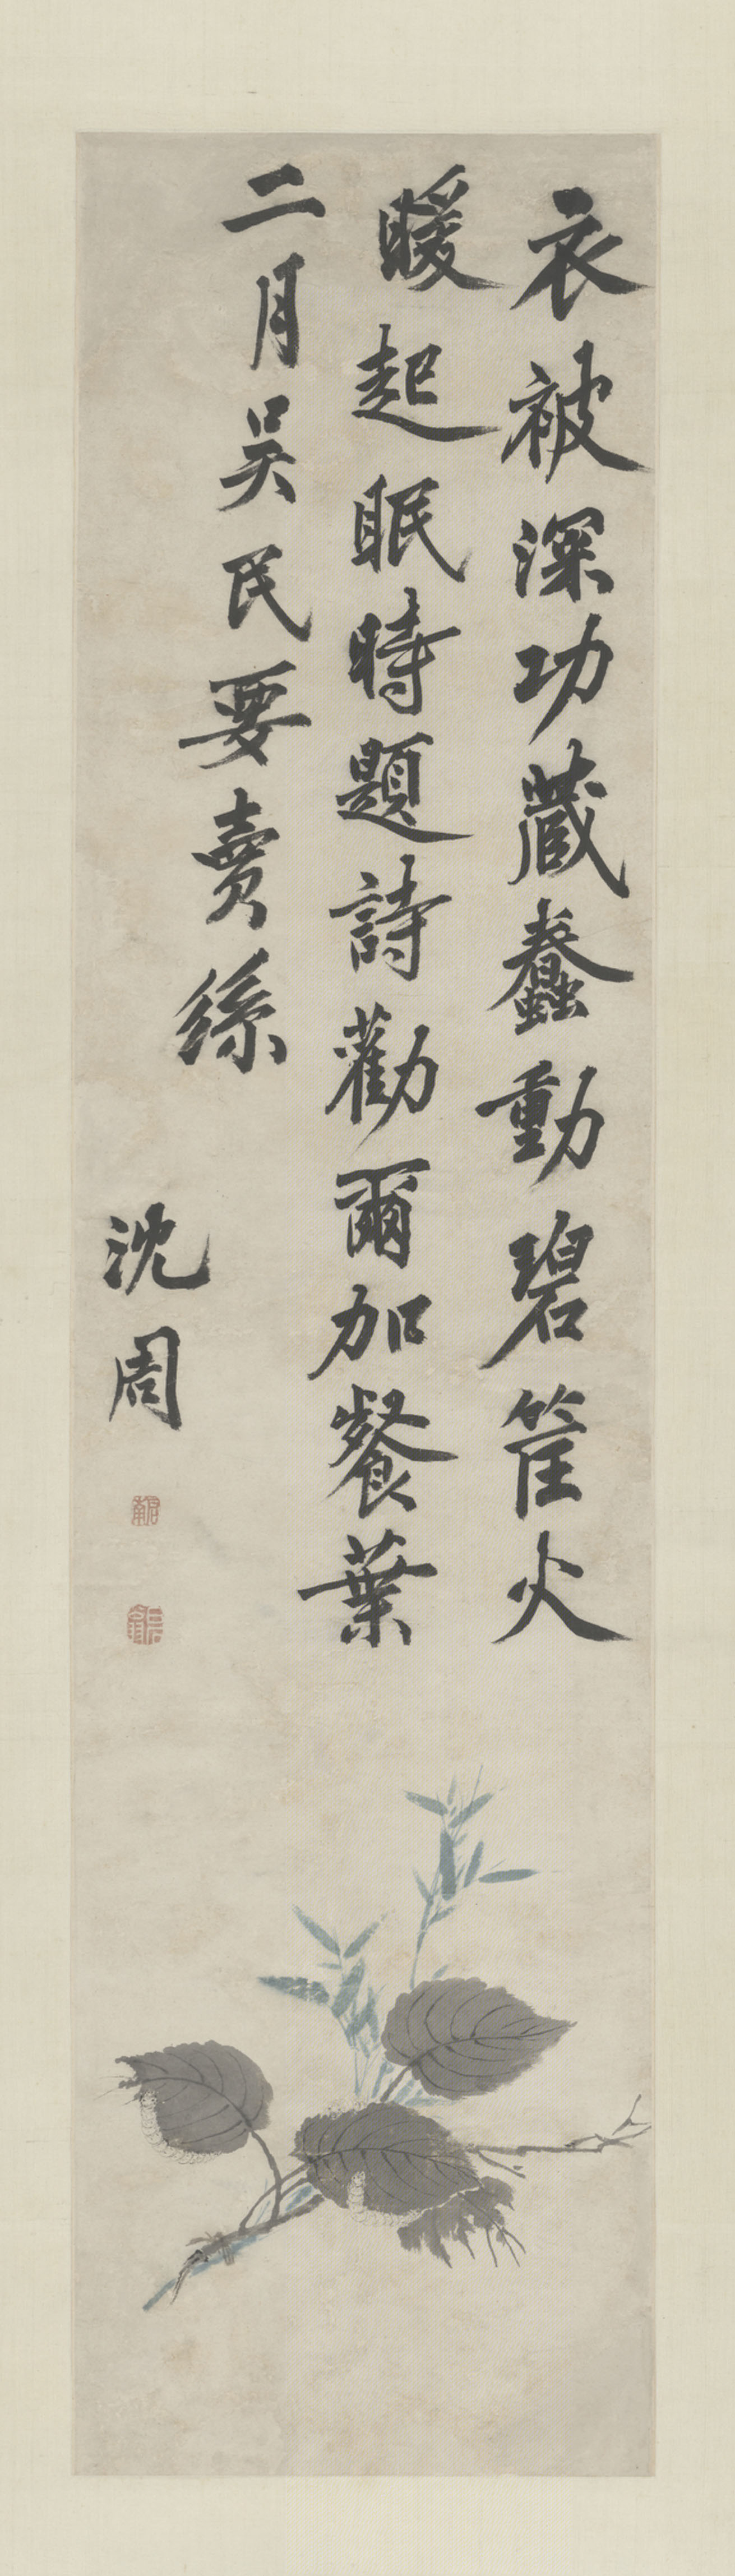 衣被深功藏蠶動碧筐火
暖起眠時題詩勸爾加餐葉
二月吳民要賣絲
沈周
啟南